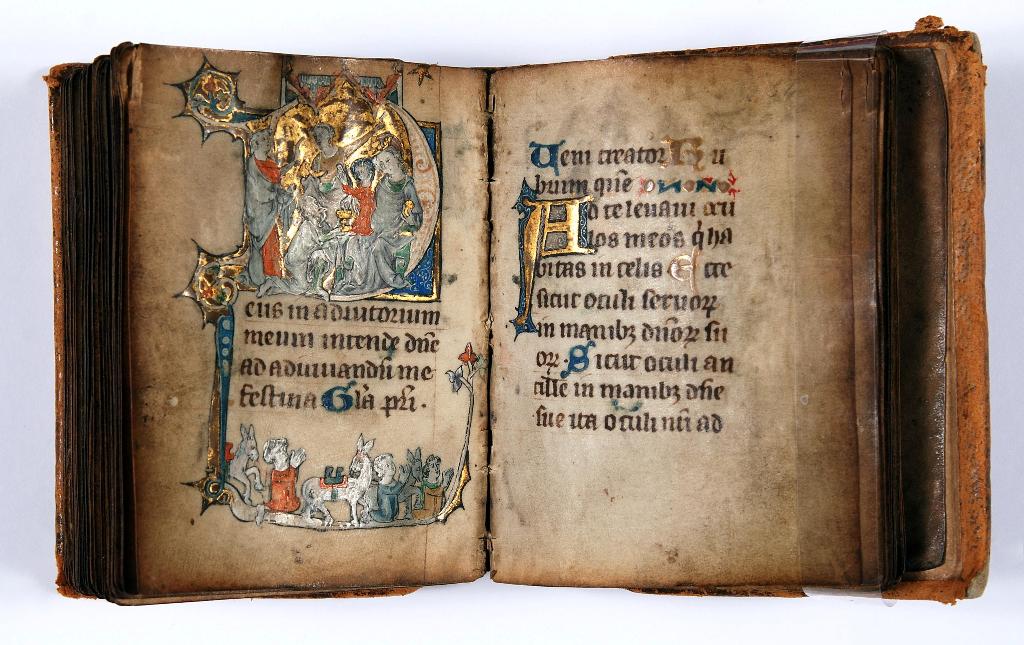 eus in adiutorium
meum intende dne
ad adiuuandu me
festina Gla pri.
Veni creator
bitum que
Ad te leuaui ocu
los meos q ha
bitas in celis Ecce
sicut oculi seruoꝝ
in manibꝫ dnoꝝ su
oꝝ. Sicut oculi an
cille in manibꝫ dne
sue ita oculi nri ad